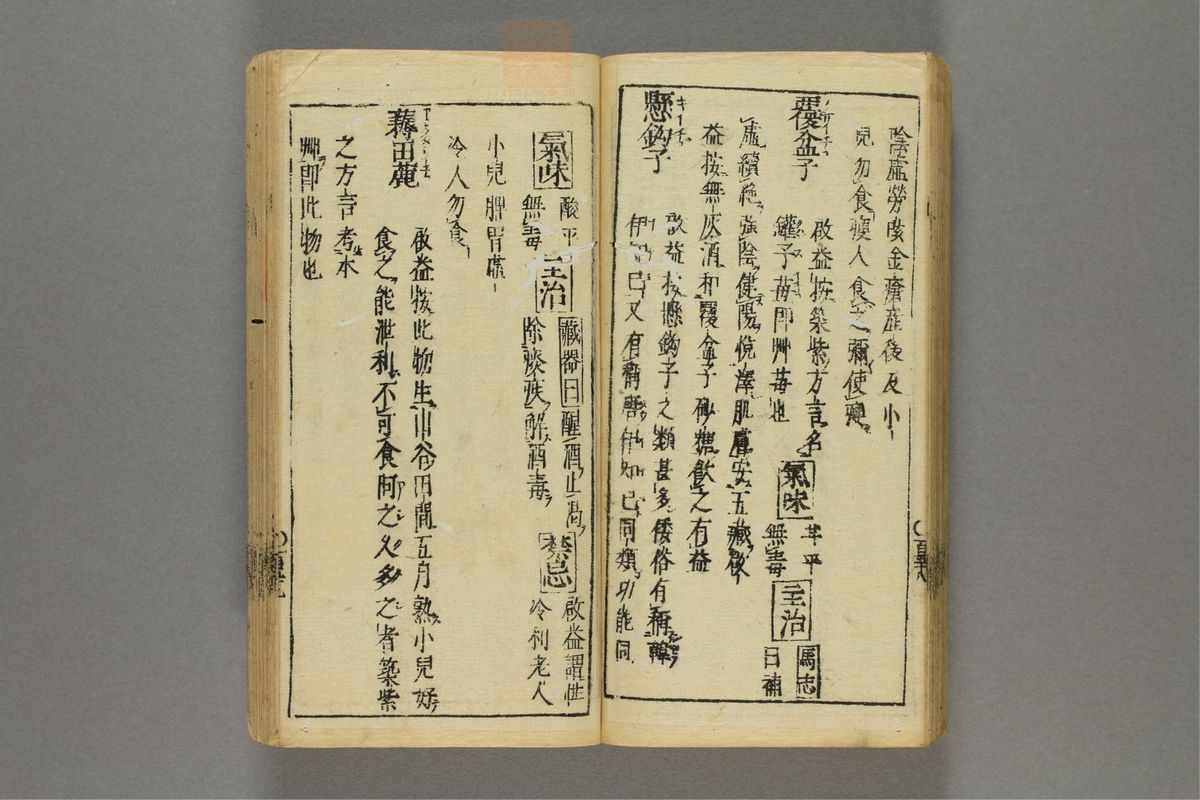 陰虛勞咳金瘡產後及小
兒勿食瘦人食之彌使瘦
覆盆子
啟益按築紫方言名
罐子苺即艸苺也
氣味
甘平
無毒
主治
馬志
曰補
虛續絕強陰健陽悅澤肌膚安五藏啟
益按無灰酒和覆盆子砂糖飲之有益
懸鈎子
啟益按懸鈎子之類甚多倭俗有稱韓
伊知己又有伊知己同類功能同
氣味
酸平
無毒
主治
藏器曰醒酒止渴
除痰疾解酒毒
禁忌
啟益謂性
冷利老人
小兒脾胃虛
冷人勿食
蓐田藨
啟益按此物生山谷田間五月熟小兒好
食之能泄利不可食阿之久多之者築紫
之方言考本
艸即此物也